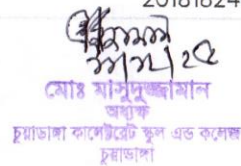 ২২/১২/২৫
মোঃ মাসুদুজ্জামান
অধ্যক্ষ
চুয়াডাঙ্গা কালেক্টরেট স্কুল এন্ড কলেজ
চুয়াডাঙ্গা